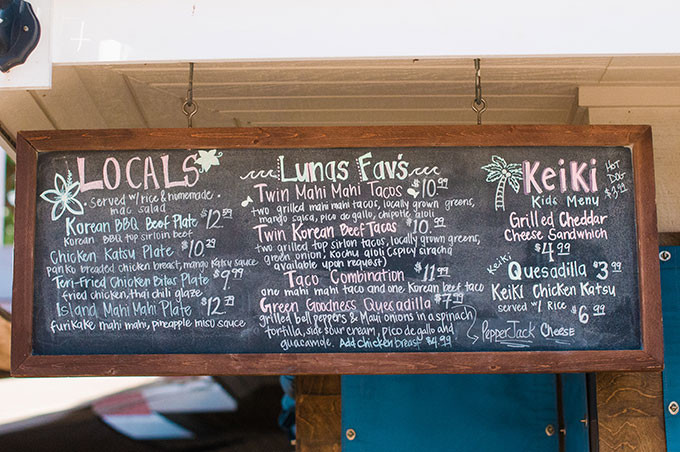 LOCALS
Served w/ rice & homemade
mac salad
Korean BBQ Beef Plate $12.99
Korean BBQ top sirloin beef
Chicken Katsu Plate $10.29
panko breaded chicken breast, mango katsu sauce
Teri-Fried Chicken Bites Plate $9.99
fried chicken, thai chili glaze
Island Mahi Mahi Plate $12.99
furikake mahi mahi, pineapple miso sauce
Lunas Fav's
Twin Mahi Mahi Tacos $10.99
two grilled mahi mahi tacos, locally grown greens,
mango salsa, pico de gallo, chipotle aioli
Twin Korean Beef Tacos $10.99
two grilled top sirloin tacos, locally grown greens,
green onion, kochu aioli (spicy siracha
available upon request)
Taco Combination $11.99
one mahi mahi taco and one Korean beef taco
Green Goodness Quesadilla $7.29
grilled bell peppers & Maui onions in a spinach
tortilla, side sour cream, pico de gallo and
guacamole. Add chicken breast $4.99
KeiKi
Kids Menu
Hot
Dog
$3.99
Grilled Cheddar
Cheese Sandwhich
$4.99
Keiki
Quesadilla $3.99
KeiKi Chicken Katsu
served w/ Rice $6.99
PepperJack Cheese